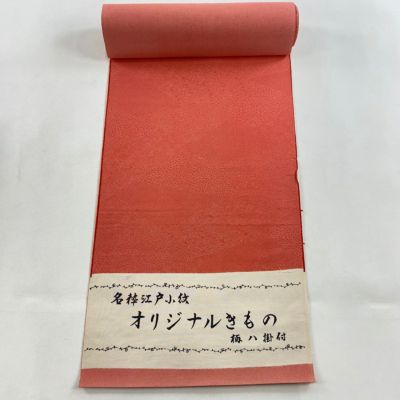 名粋江戸小紋
オリジナルきもの
柄八掛付